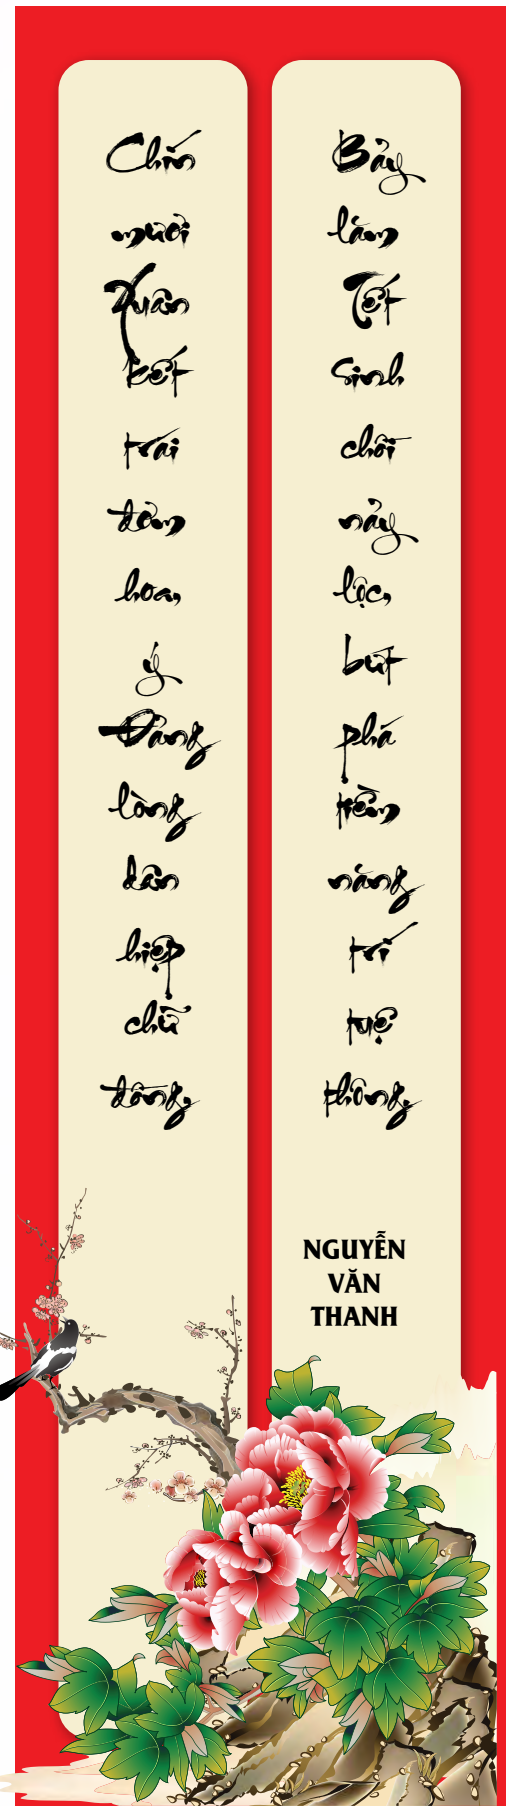 Chín
mươi
Xuân
kết
trái
đơm
hoa,
ý
Đảng
lòng
dân
hiệp
chữ
đồng,
Bảy
lăm
Tết
sinh
chồi
nảy
lộc,
bứt
phá
tiềm
năng
trí
tuệ
thông.
NGUYỄN
VĂN
THANH